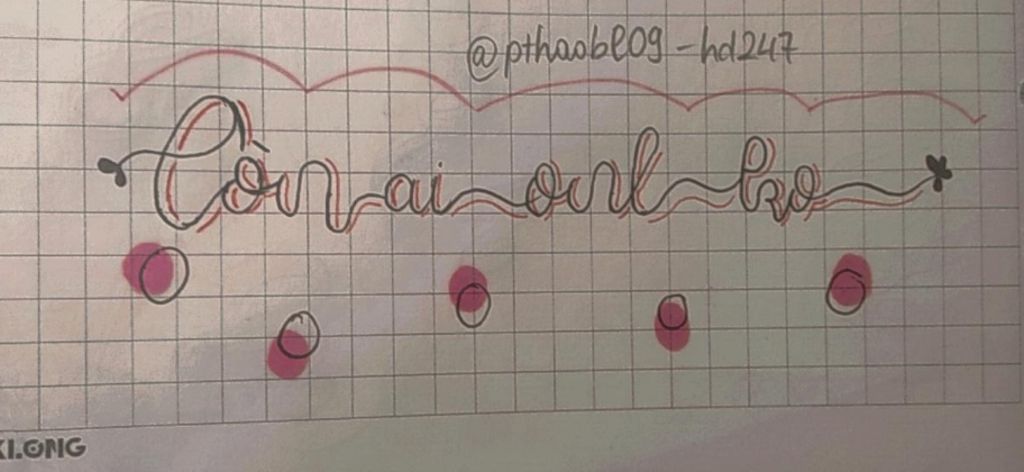 @pthaoble09-hd247
Còn ai onl ko
KLONG